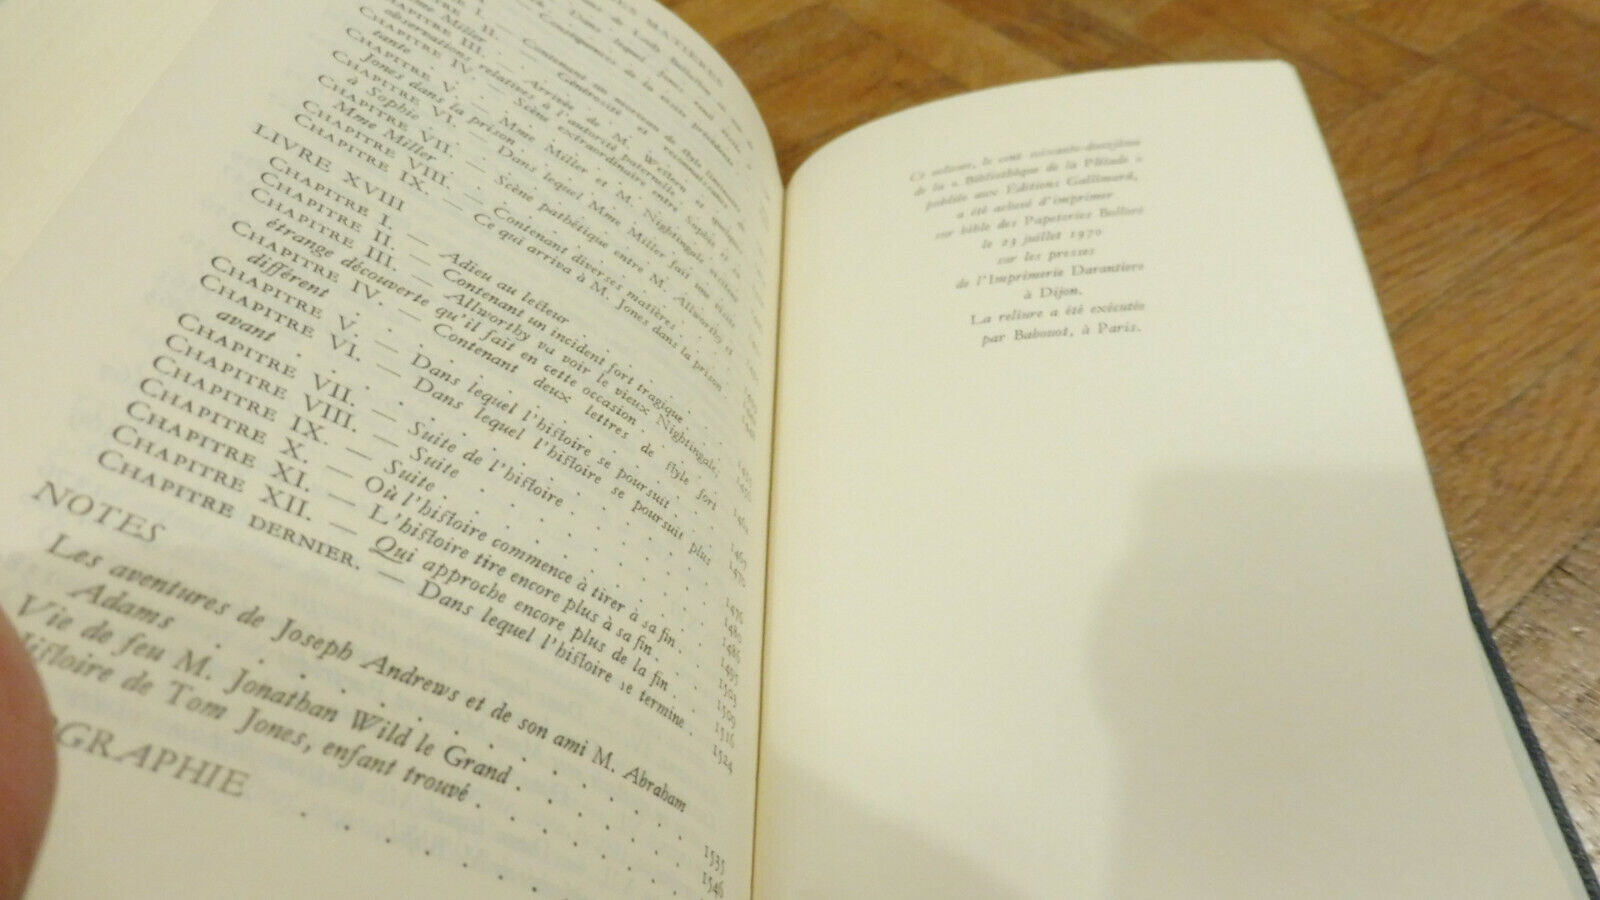 DES MATIÈRES
CHAPITRE III. — Arrivée de M. Western
observations relatives à l'autorité paternelle
CHAPITRE IV. — Scène extraordinaire entre Sophie et sa
tante
CHAPITRE V. — Mme Miller et M. Nightingale visitent
Jones dans la prison
CHAPITRE VI. — Dans lequel Mme Miller fait une visite
à Sophie
CHAPITRE VII. — Scène pathétique entre M. Allworthy et
Mme Miller
CHAPITRE VIII. — Contenant diverses matières
CHAPITRE IX. — Ce qui arriva à M. Jones dans la prison
LIVRE XVIII
CHAPITRE I. — Adieu au lecteur
CHAPITRE II. — Contenant un incident fort tragique
CHAPITRE III. — Allworthy va voir le vieux Nightingale;
étrange découverte qu'il fait en cette occasion
CHAPITRE IV. — Contenant deux lettres de style fort
différent
CHAPITRE V. — Dans lequel l'histoire se poursuit
CHAPITRE VI. — Dans lequel l'histoire se poursuit plus
avant
CHAPITRE VII. — Suite de l'histoire 1476
CHAPITRE VIII. — Suite 1480
CHAPITRE IX. — Suite 1486
CHAPITRE X. — Où l'histoire commence à tirer à sa fin 1495
CHAPITRE XI. — L'histoire tire encore plus à sa fin 1503
CHAPITRE XII. — Qui approche encore plus de la fin 1509
CHAPITRE DERNIER. — Dans lequel l'histoire se termine 1516
NOTES 1524
Les aventures de Joseph Andrews et de son ami M. Abraham
Adams
Vie de feu M. Jonathan Wild le Grand 1535
Histoire de Tom Jones, enfant trouvé 1546
OGRAPHIE
Ce volume, le cent soixante-douzième
de la « Bibliothèque de la Pléiade »
publiée aux Éditions Gallimard,
a été achevé d'imprimer
sur bible des Papeteries Bolloré
le 23 juillet 1970
sur les presses
de l'Imprimerie Darantiere
à Dijon.
La reliure a été exécutée
par Babouot, à Paris.